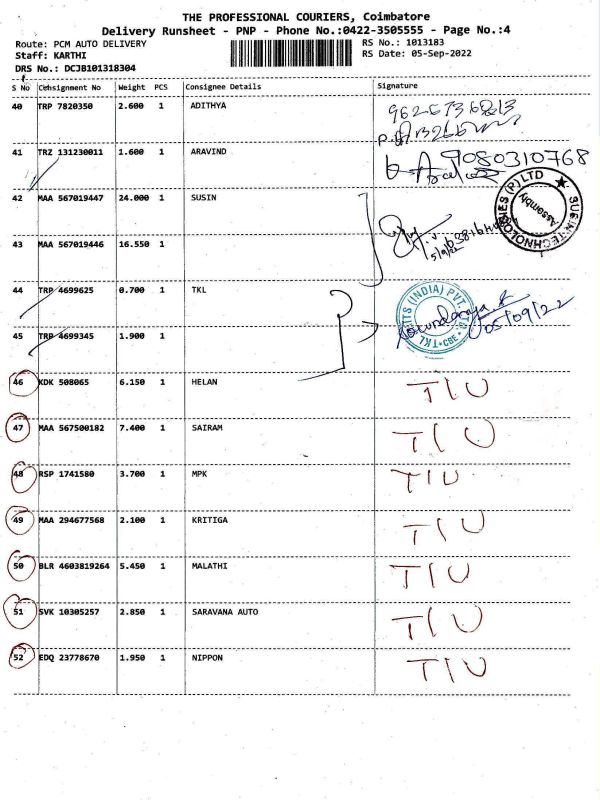 THE PROFESSIONAL COURIERS, Coimbatore
Delivery Runsheet - PNP - Phone No.:0422-3505555 - Page No.:4
Route: PCM AUTO DELIVERY
RS No.: 1013183
Staff: KARTHI
RS Date: 05-Sep-2022
DRS No.: DCJB101318304
S No Consignment No Weight PCS Consignee Details Signature
40 TRP 7820350 2.600 1 ADITHYA
41 TRZ 131230011 1.600 1 ARAVIND 9080310768
42 MAA 567019447 24.000 1 SUSIN
SUSIN TECHNOLOGIES (P) LTD
Assembly
43 MAA 567019446 16.550 1
44 TRP 4699625 0.700 1 TKL
05/09/22
45 TRP 4699345 1.900 1
46 KDK 508065 6.150 1 HELAN T/U
47 MAA 567500182 7.400 1 SAIRAM T/U
48 RSP 1741580 3.700 1 MPK T/U
49 MAA 294677568 2.100 1 KRITIGA T/U
50 BLR 4603819264 5.450 1 MALATHI T/U
51 SVK 10305257 2.850 1 SARAVANA AUTO T/U
52 EDQ 23778670 1.950 1 NIPPON T/U